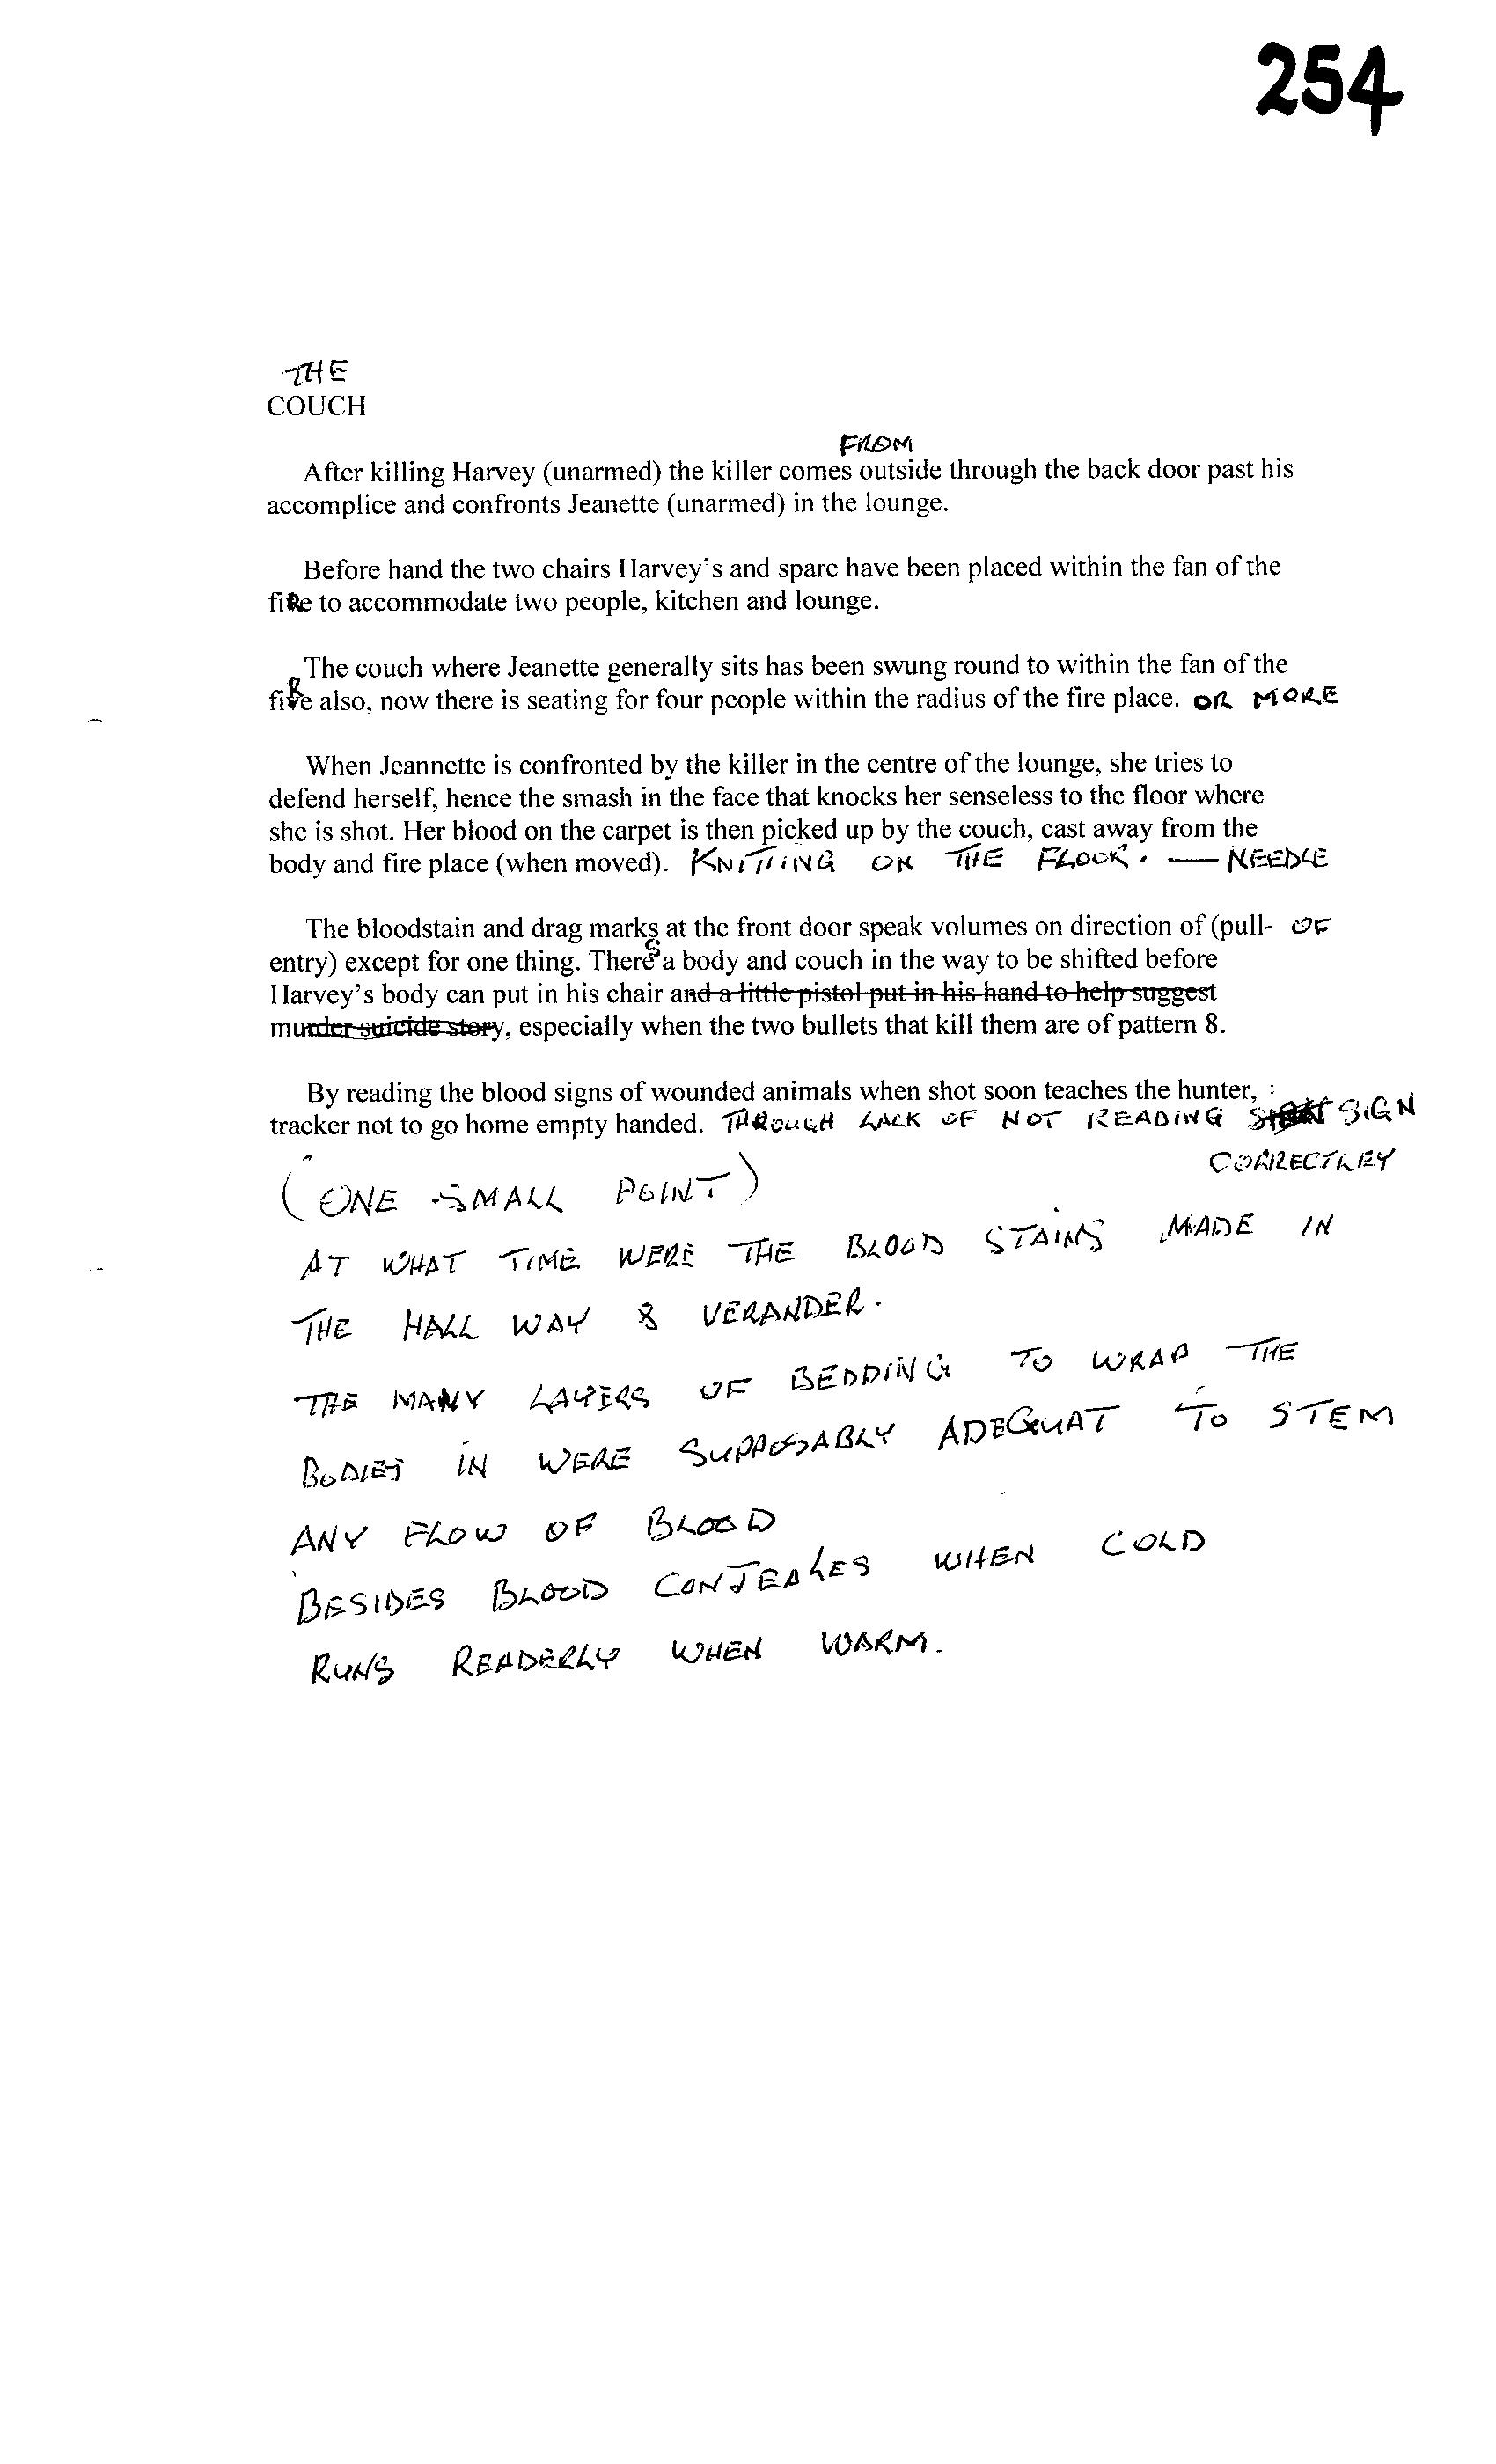 254
THE
COUCH
FROM
After killing Harvey (unarmed) the killer comes outside through the back door past his
accomplice and confronts Jeanette (unarmed) in the lounge.
Before hand the two chairs Harvey's and spare have been placed within the fan of the
fiRe to accommodate two people, kitchen and lounge.
The couch where Jeanette generally sits has been swung round to within the fan of the
fiRe also, now there is seating for four people within the radius of the fire place. OR MORE
When Jeannette is confronted by the killer in the centre of the lounge, she tries to
defend herself, hence the smash in the face that knocks her senseless to the floor where
she is shot. Her blood on the carpet is then picked up by the couch, cast away from the
body and fire place (when moved). KNITTING ON THE FLOOR. — NEEDLE
The bloodstain and drag marks at the front door speak volumes on direction of (pull- OF
entry) except for one thing. There S a body and couch in the way to be shifted before
Harvey's body can put in his chair and a little pistol put in his hand to help suggest
murder suicide story, especially when the two bullets that kill them are of pattern 8.
By reading the blood signs of wounded animals when shot soon teaches the hunter, :
tracker not to go home empty handed. THROUGH LACK OF NOT READING SIGN
CORRECTLEY
(ONE SMALL POINT)
AT WHAT TIME WERE THE BLOOD STAINS MADE IN
THE HALL WAY & VERANDER.
THE MANY LAYERS OF BEDDING TO WRAP THE
BODIES IN WERE SUPPOSSABLY ADEQUAT TO STEM
ANY FLOW OF BLOOD
BESIDES BLOOD CONJEALES WHEN COLD
RUNS READERLY WHEN WARM.